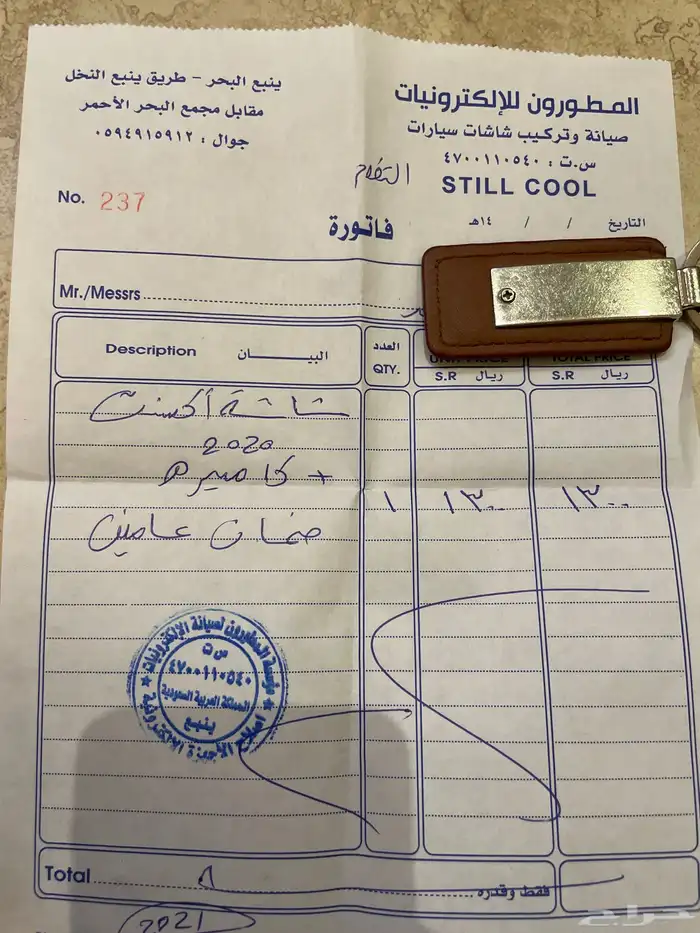 المطورون للإلكترونيات
صيانة وتركيب شاشات سيارات
س.ت : ٤٧٠٠١١٠٥٤٠
STILL COOL
ينبع البحر - طريق ينبع النخل
مقابل مجمع البحر الأحمر
جوال : ٠٥٩٤٩١٥٩١٢
No. 237
فاتورة
التاريخ / / ١٤هـ
Mr./Messrs
Description البيــــان
العدد QTY.
UNIT PRICE
TOTAL PRICE
S.R ريال
S.R ريال
شاشة أكسنت
2020
+ كاميره
١ ١٣٠٠ ١٣٠٠
ضمان عامين
مؤسسة المطورون لصيانة الإلكترونيات
س ت
٤٧٠٠١١٠٥٤٠
المملكة العربية السعودية
ينبع
اصلاح الأجهزة الإلكترونية
Total فقط وقدره
2021
حراج